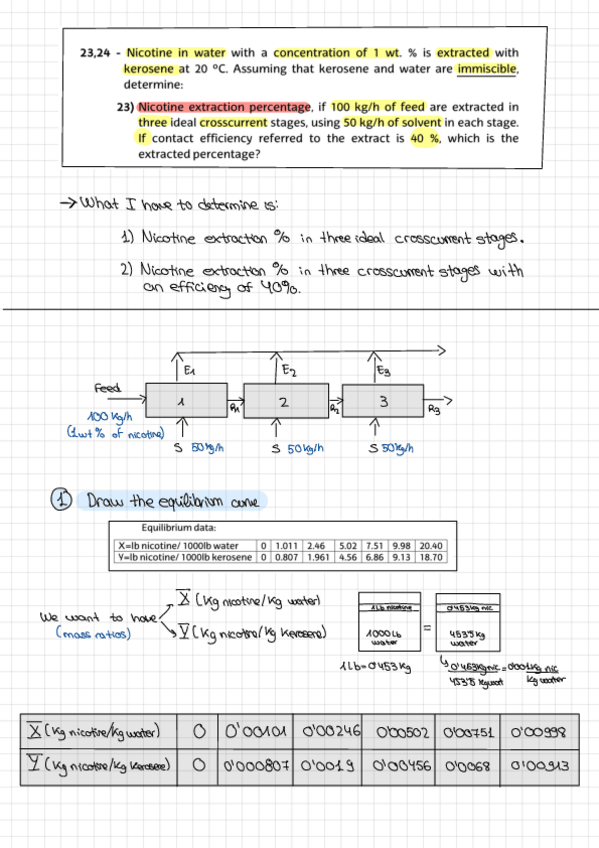 23,24 - Nicotine in water with a concentration of 1 wt. % is extracted with
kerosene at 20 ºC. Assuming that kerosene and water are immiscible,
determine:
23) Nicotine extraction percentage, if 100 kg/h of feed are extracted in
three ideal crosscurrent stages, using 50 kg/h of solvent in each stage.
If contact efficiency referred to the extract is 40 %, which is the
extracted percentage?
→ What I have to determine is:
1) Nicotine extraction % in three ideal crosscurrent stages.
2) Nicotine extraction % in three crosscurrent stages with
an efficiency of 40%.
E1 E2 E3
Feed
1 R1 2 R2 3 R3
100 Kg/h
(1wt % of nicotine)
S 50kg/h S 50kg/h S 50kg/h
1 Draw the equilibrium curve
Equilibrium data:
X=lb nicotine/ 1000lb water 0 1.011 2.46 5.02 7.51 9.98 20.40
Y=lb nicotine/ 1000lb kerosene 0 0.807 1.961 4.56 6.86 9.13 18.70
We want to have
(mass ratios)
X (Kg nicotine/Kg water)
Y (Kg nicotine/Kg Kerosene)
1Lb nicotine
1000Lb
water
=
0'453kg nic
453'5kg
water
1Lb=0'453Kg
0'453kg nic = 0'001 kg nic
453'5 kg wat kg water
X (Kg nicotine/Kg water) 0 0'00101 0'00246 0'00502 0'00751 0'00998
Y (Kg nicotine/Kg Kerosene) 0 0'000807 0'0019 0'00456 0'0068 0'00913